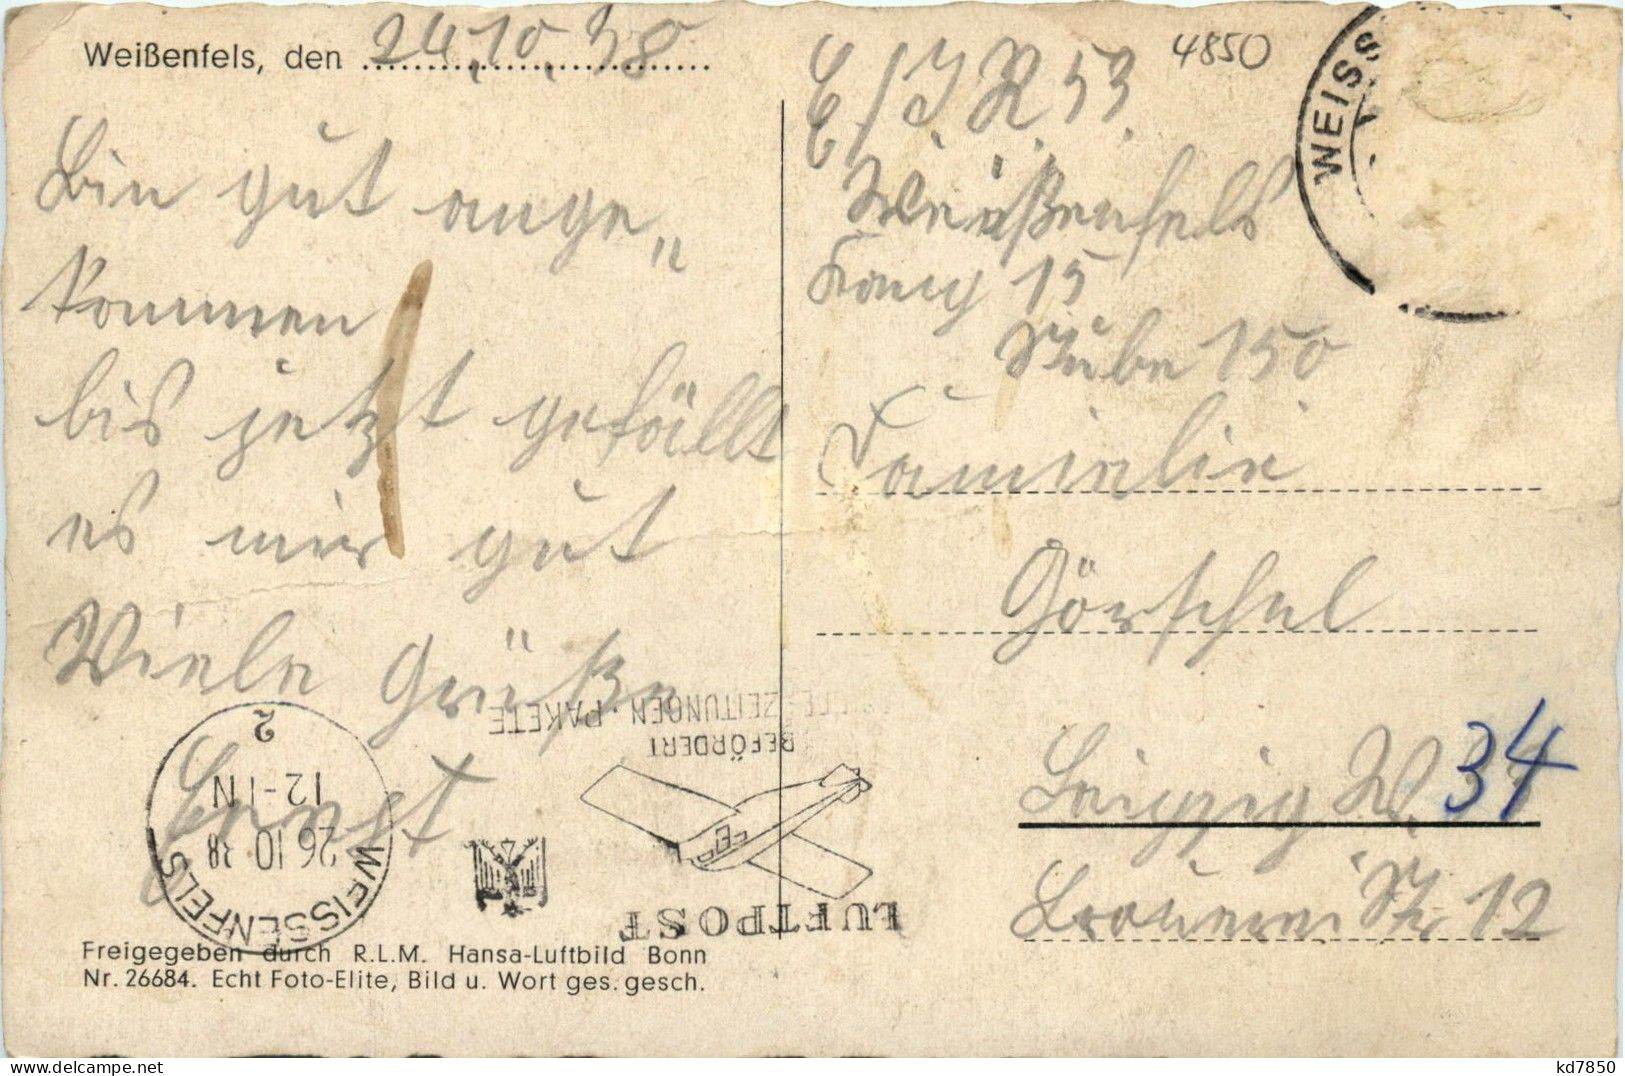 Weißenfels, den 24.10.38
Bin gut ange„
kommen
bis jetzt gefällt
es mir gut
Viele Grüße
Ernst
4850
E/J.R. 53.
Weißenfels
Stube 150
Familie
Görschel
Leipzig W. 34
Brauerei Str 12
WEISS
WEISSENFELS
26 10 38
12-1 N
2
LUFTPOST
BEFÖRDERT
ZEITUNGEN · PAKETE
Freigegeben durch R.L.M. Hansa-Luftbild Bonn
Nr. 26684. Echt Foto-Elite, Bild u. Wort ges. gesch.
kd7850